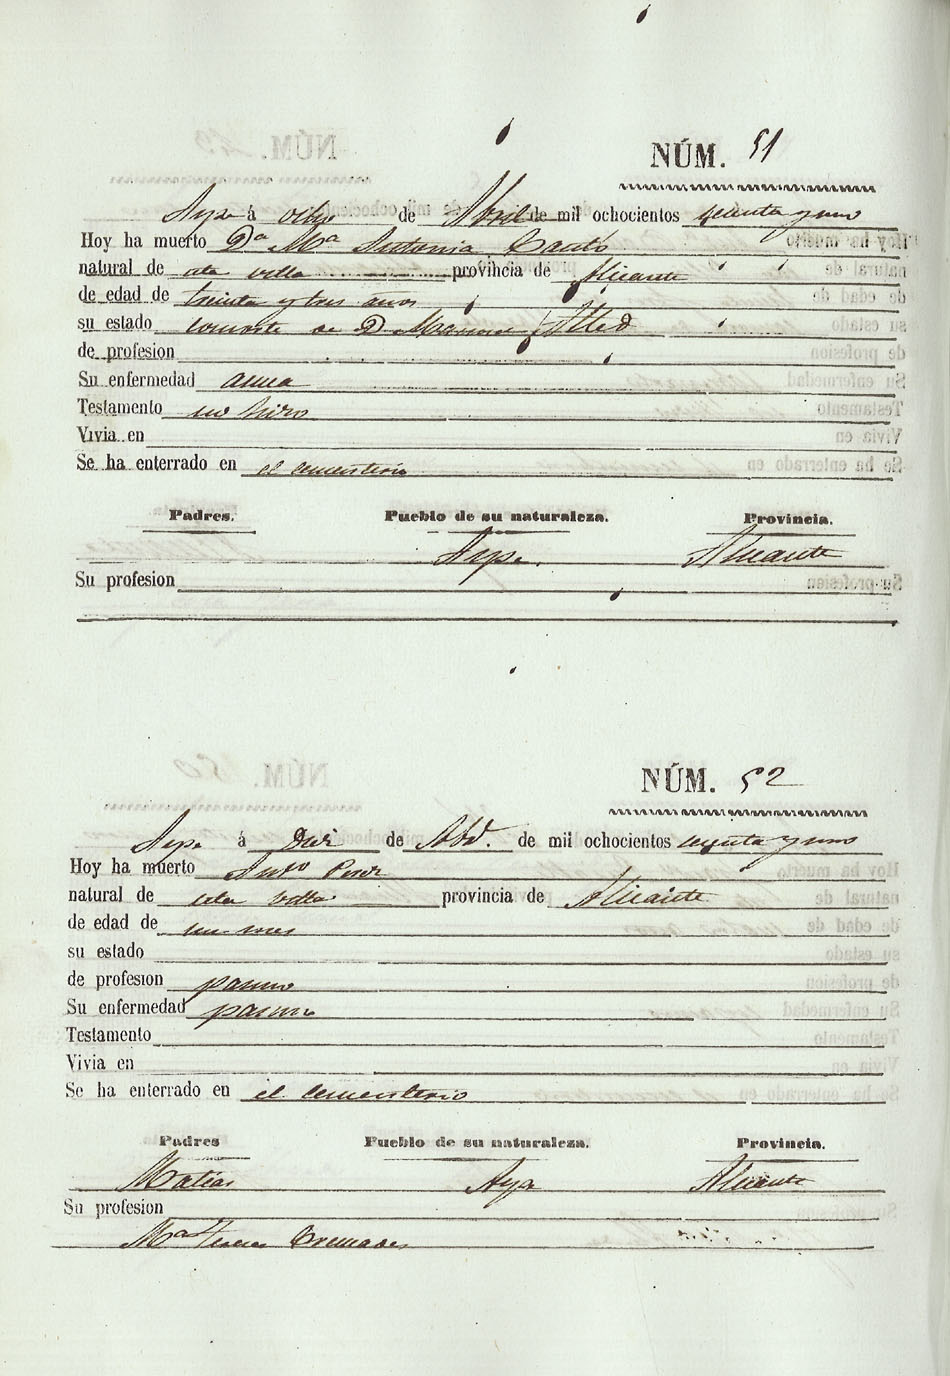 NÚM. 51
Aspe á ocho de Abril de mil ochocientos sesenta y uno
Hoy ha muerto Dª Mª Antonia Cantó
natural de esta villa provincia de Alicante
de edad de treinta y tres años
su estado consorte de D. Mariano Alted
de profesion
Su enfermedad asma
Testamento no hizo
Vivia en
Se ha enterrado en el cementerio
Padres. Pueblo de su naturaleza. Provincia.
Aspe. Alicante
Su profesion
NÚM. 52
Aspe á Diez de Abl. de mil ochocientos sesenta y uno
Hoy ha muerto Antº
natural de esta villa provincia de Alicante
de edad de un mes
su estado
de profesion parvulo
Su enfermedad
Testamento
Vivia en
Se ha enterrado en el cementerio
Padres Pueblo de su naturaleza. Provincia.
Matias Aspe Alicante
Su profesion
Mª Teresa Cremades